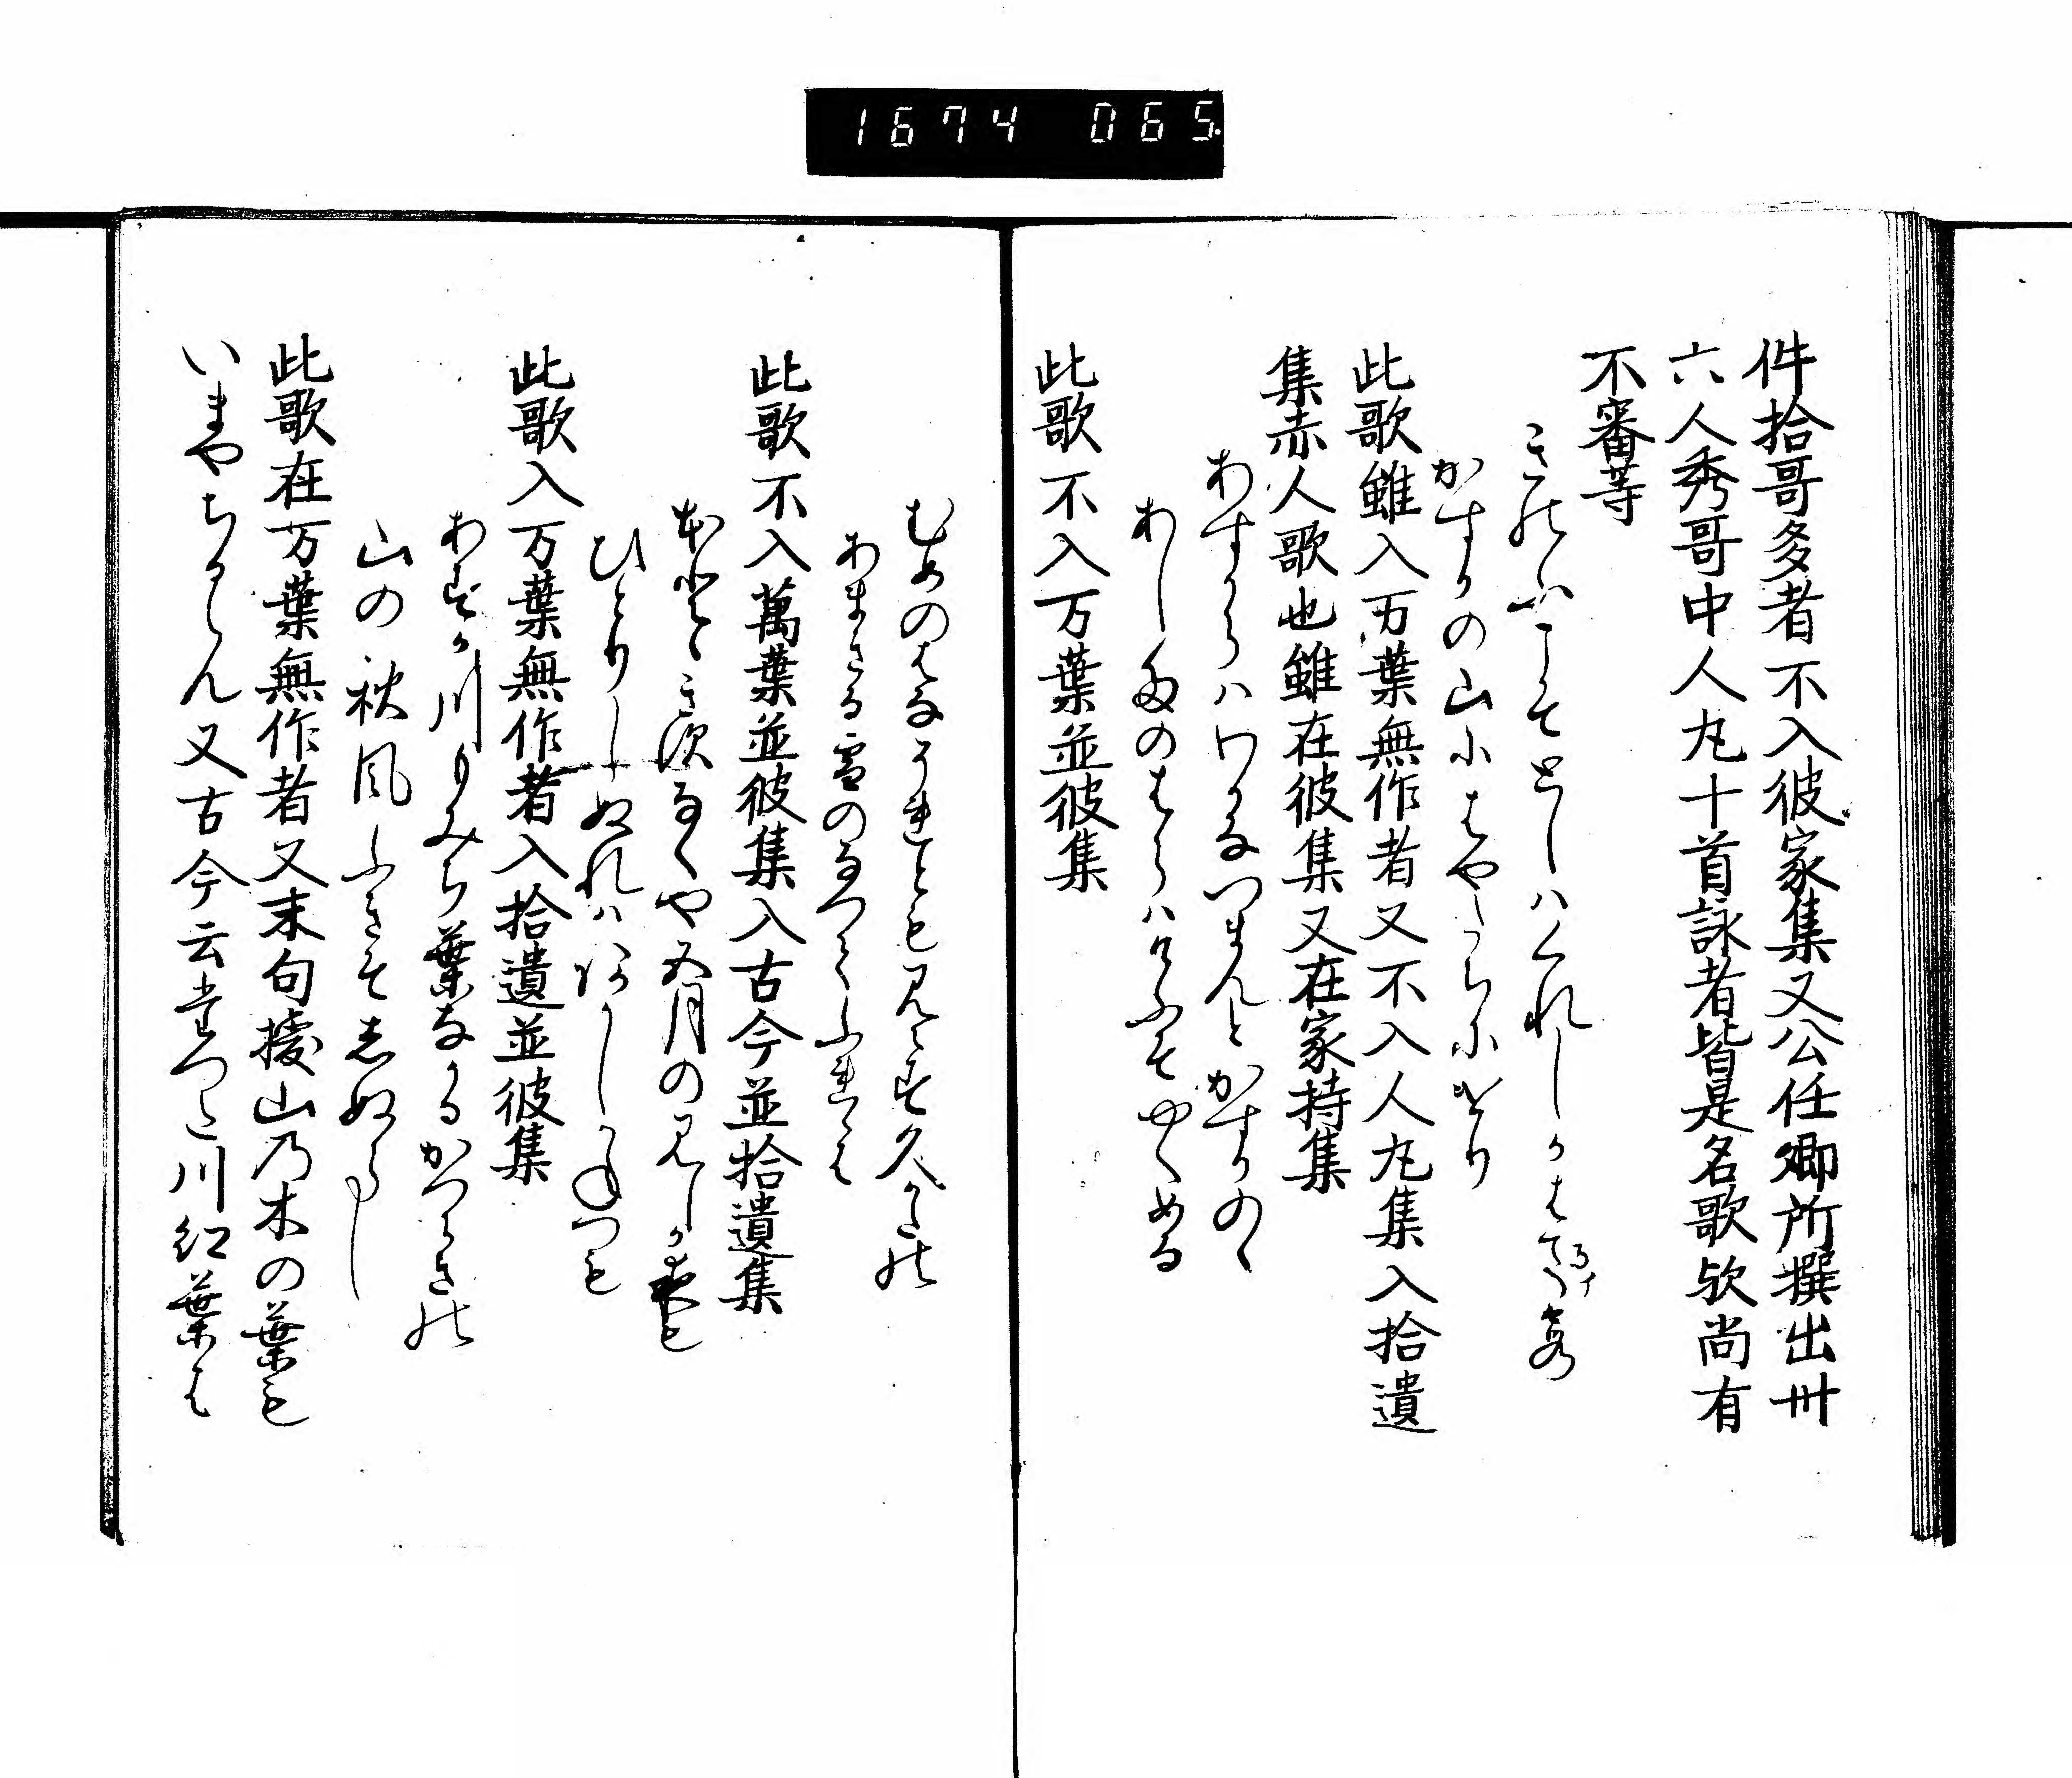 1674 065
件拾哥多者不入彼家集又公任卿所撰出卅
六人秀哥中人丸十首詠者皆是名歌欤尚有
不審等
きのふこそとしはくれしかはるかすみ
かすかの山にはやたちにけり
此歌雖入万葉無作者又不入人丸集入拾遺
集赤人歌也雖在彼集又在家持集
あすからはわかなつまんとかすかのゝ
あしたのはらはけふそやくめる
此歌不入万葉並彼集
むめのはなそれとも見えす久かたの
あまきる雪のなへてふれゝは
此歌不入萬葉並彼集入古今並拾遺集
ほとゝきすなくや五月の見しか夜も
ひとりしぬれはあかしかねつも
此歌入万葉無作者入拾遺並彼集
あすか川もみち葉なかるかつらきの
山の秋風ふきそしぬらし
此歌在万葉無作者又末句授山乃木の葉も
いまやちるらん又古今云たつた川紅葉は